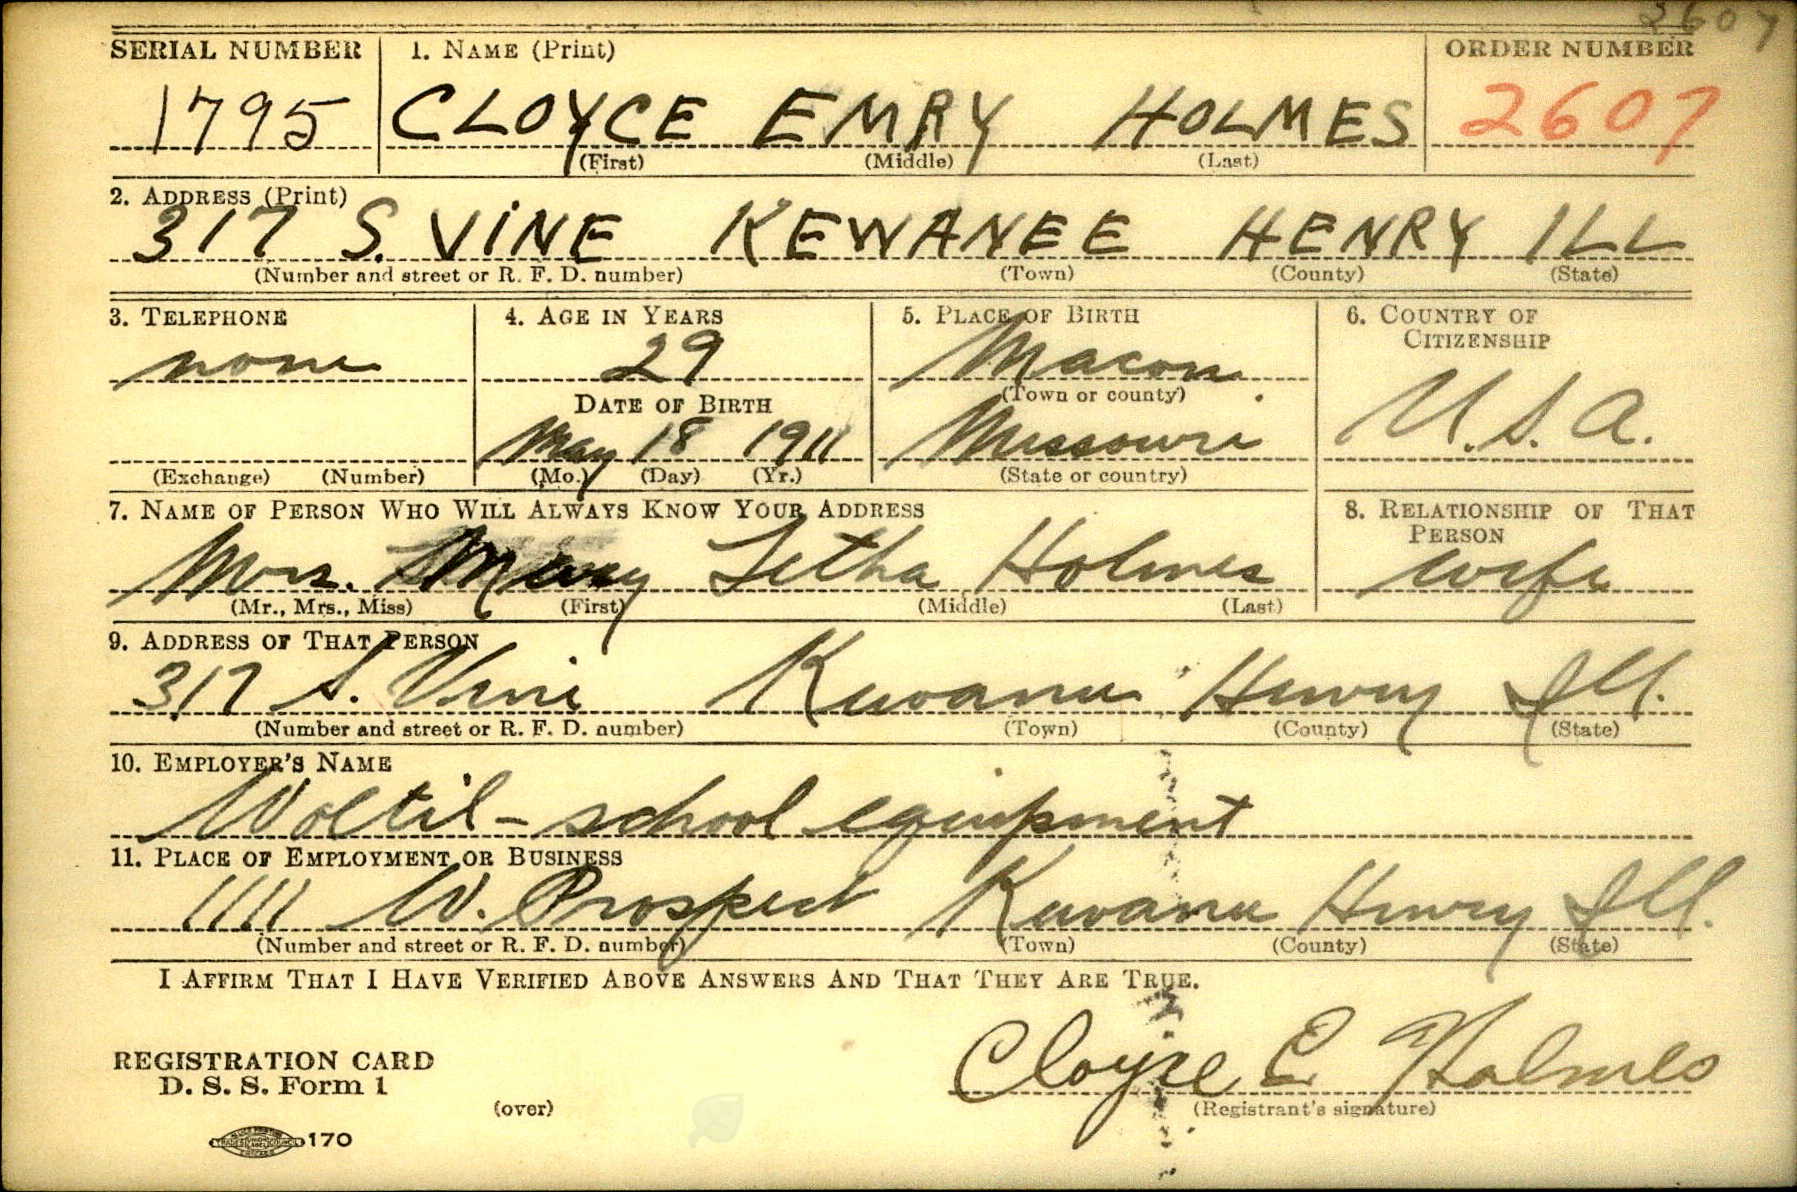 2607
SERIAL NUMBER 1. NAME (Print) ORDER NUMBER
1795 CLOYCE EMRY HOLMES 2607
(First) (Middle) (Last)
2. ADDRESS (Print)
317 S. VINE KEWANEE HENRY ILL
(Number and street or R. F. D. number) (Town) (County) (State)
3. TELEPHONE 4. AGE IN YEARS 5. PLACE OF BIRTH 6. COUNTRY OF CITIZENSHIP
none 29 Macon U.S.A.
DATE OF BIRTH (Town or county)
May 18 1911 Missouri
(Exchange) (Number) (Mo.) (Day) (Yr.) (State or country)
7. NAME OF PERSON WHO WILL ALWAYS KNOW YOUR ADDRESS 8. RELATIONSHIP OF THAT PERSON
Mrs. Mary Letha Holmes wife
(Mr., Mrs., Miss) (First) (Middle) (Last)
9. ADDRESS OF THAT PERSON
317 S. Vine Kewanee Henry Ill.
(Number and street or R. F. D. number) (Town) (County) (State)
10. EMPLOYER'S NAME
school equipment
11. PLACE OF EMPLOYMENT OR BUSINESS
1111 W. Prospect Kewanee Henry Ill.
(Number and street or R. F. D. number) (Town) (County) (State)
I AFFIRM THAT I HAVE VERIFIED ABOVE ANSWERS AND THAT THEY ARE TRUE.
Cloyce E Holmes
(Registrant's signature)
REGISTRATION CARD
D. S. S. Form 1
(over)
170